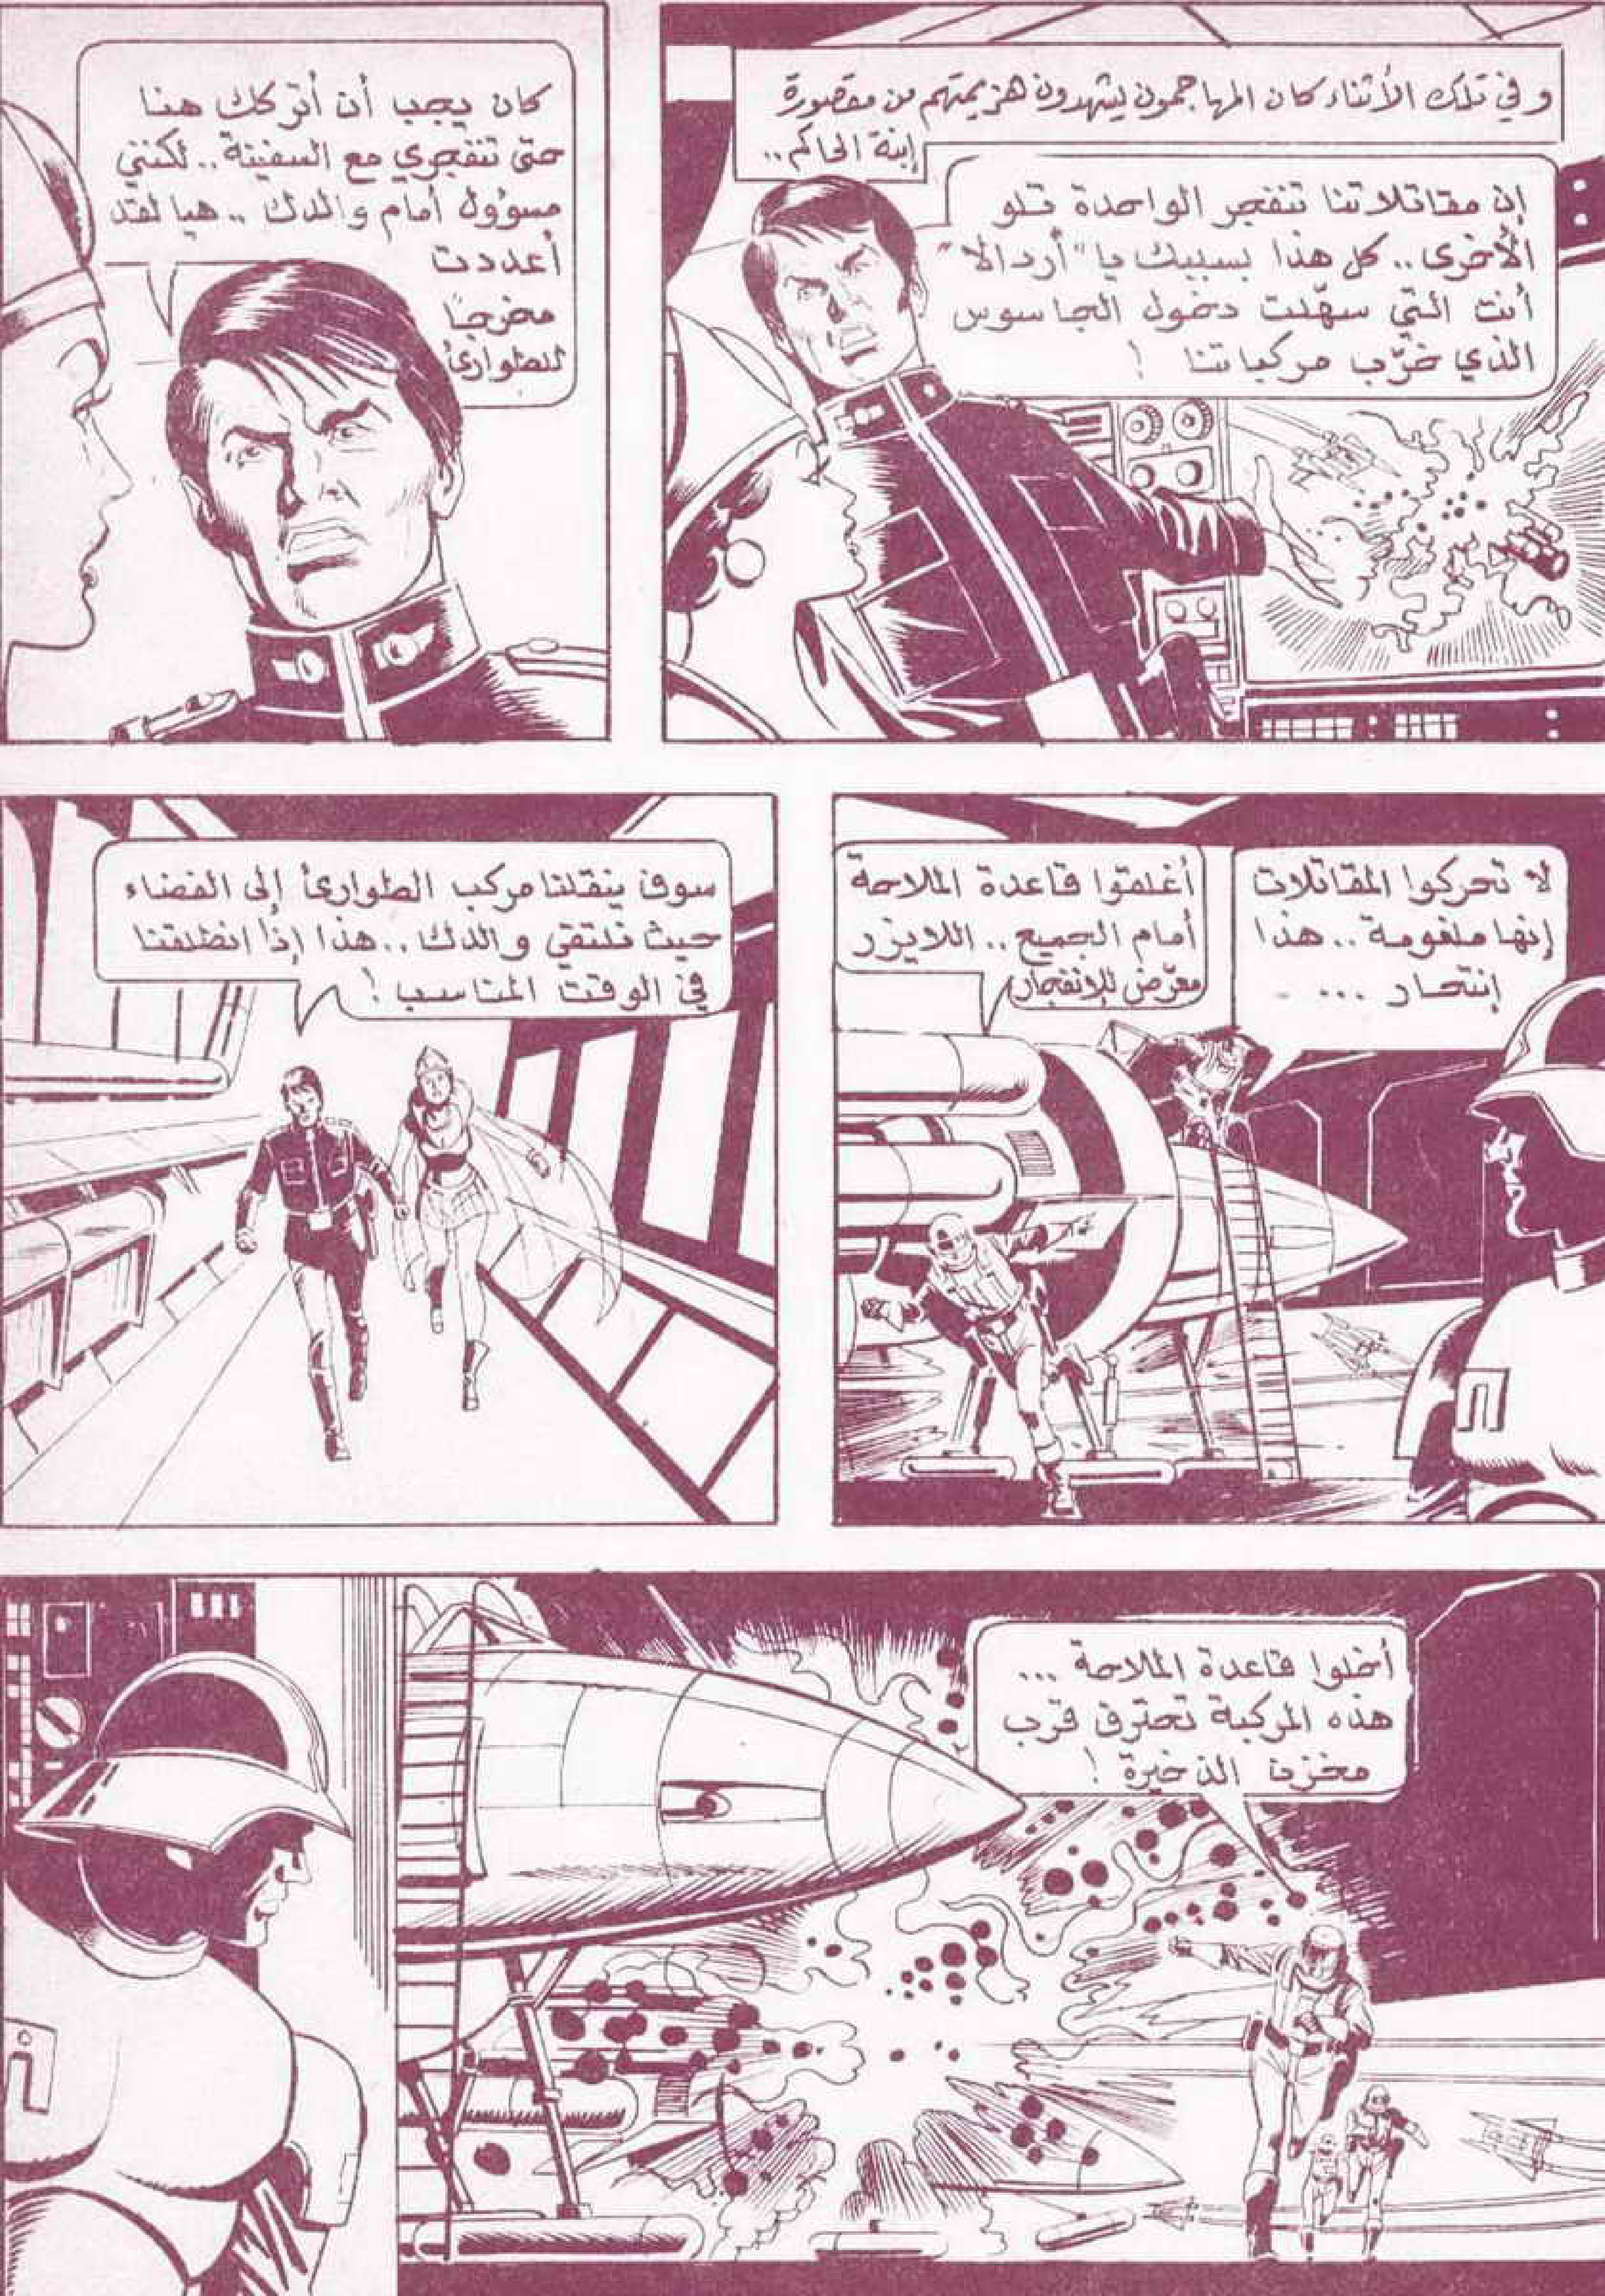 و في تلك الأثناء كان المهاجمون يشهدون هزيمتهم من مقصورة
إبنة الحاكم..
إن مقاتلاتنا تنفجر الواحدة تلو
الأخرى.. كل هذا بسببك يا "أردالا"
أنت التي سهّلت دخول الجاسوس
الذي خرّب مركباتنا !
كان يجب أن أتركك هنا
حتى تنفجري مع السفينة.. لكنني
مسؤول أمام والدك.. هيا لقد
أعددت
مخرجًا
للطوارئ
لا تحركوا المقاتلات
إنها ملغومة.. هذا
إنتحار ...
أغلقوا قاعدة الملاحة
أمام الجميع.. اللايزر
معرّض للإنفجار
سوف ينقلنا مركب الطوارئ إلى الفضاء
حيث نلتقي والدك.. هذا إذا انطلقنا
في الوقت المناسب !
أخلوا قاعدة الملاحة ...
هذه المركبة تحترق قرب
مخزن الذخيرة !